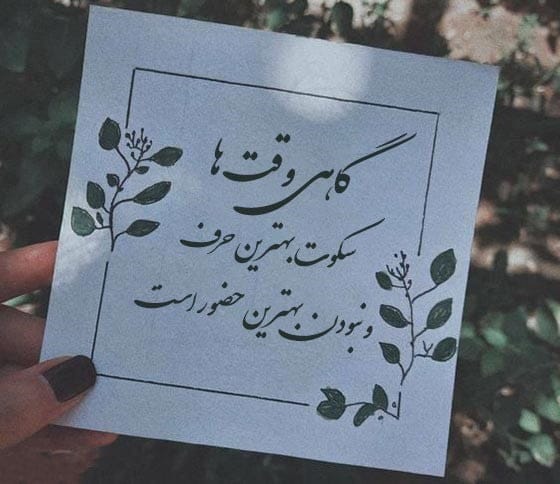 گاهی وقت ها
سکوت بهترین حرف
و نبودن بهترین حضور است